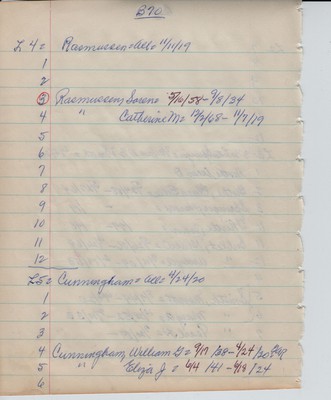 B70
L 4 = Rasmussen = All = 11/11/19
1
2
3 Rasmussen, Sorene 5/10/58 - 9/8/34
4 " Catherine M = 12/2/68 - 11/7/19
5
6
7
8
9
10
11
12
L5 = Cunningham = All = 4/24/20
1
2
3
4 Cunningham, William G = 9/17/28 - 4/24/20
5 " Eliza J = 6/4/41 - 4/18/24
6